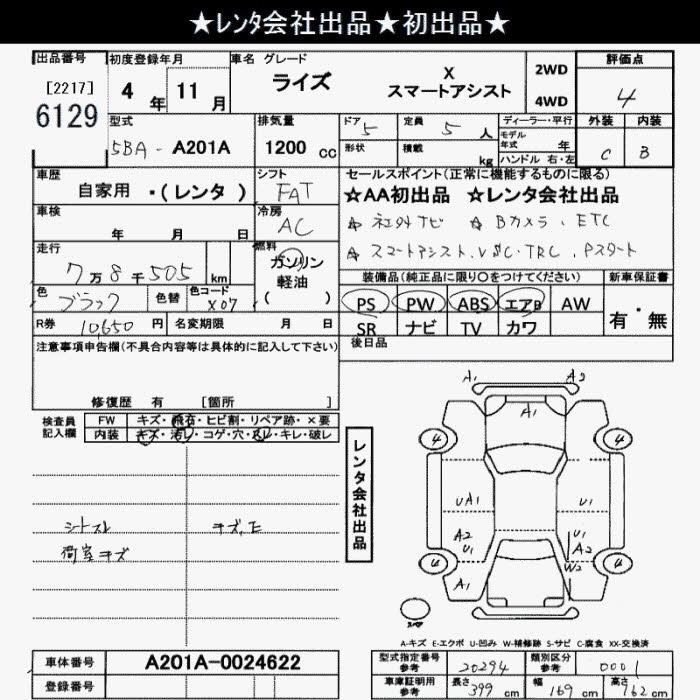 ★レンタ会社出品★初出品★
出品番号 初度登録年月 車名 グレード 評価点
[2217] 4年 11月 ライズ X 2WD 4
6129 スマートアシスト 4WD
型式 排気量 ドア 5 定員 5人 ディーラー・平行 外装 内装
5BA - A201A 1200cc 形状 積載 kg モデル年式 年 C B
ハンドル 右・左
車歴 シフト セールスポイント(正常に機能するものに限る)
自家用 ・(レンタ) FAT ★AA初出品 ☆レンタ会社出品
車検 年 月 日 冷房 AC ☆社外ナビ ☆Bカメラ、ETC
走行 燃料 ☆スマートアシスト、VSC・TRC、Pスタート
7万8千505km ガソリン
軽油
( )
装備品(純正品に限り○をつけてください) 新車保証書
色 ブラック 色替 色コード X07 PS PW ABS エアB AW 有・無
R券 10650円 名変期限 月 日 SR ナビ TV カワ
注意事項申告欄(不具合内容等は具体的に記入して下さい) 後日品
修復歴 有 [箇所 ]
検査員 FW キズ・飛石・ヒビ割・リペア跡・×要
記入欄 内装 キズ・汚レ・コゲ・穴・スレ・キレ・破レ
レンタ会社出品
A1 A2
A1
4 4
UA1 U1
A2 U1
U1 A2
W2
4 4
A1
シートスレ キズ、E
荷室キズ
スペア
A-キズ E-エクボ U-凹み W-補修跡 S-サビ C-腐食 XX-交換済
車体番号 A201A-0024622
登録番号
型式指定番号参考 20294 類別区分参考 0001
車庫証明用参考 長さ 399cm 幅 169cm 高さ 162cm